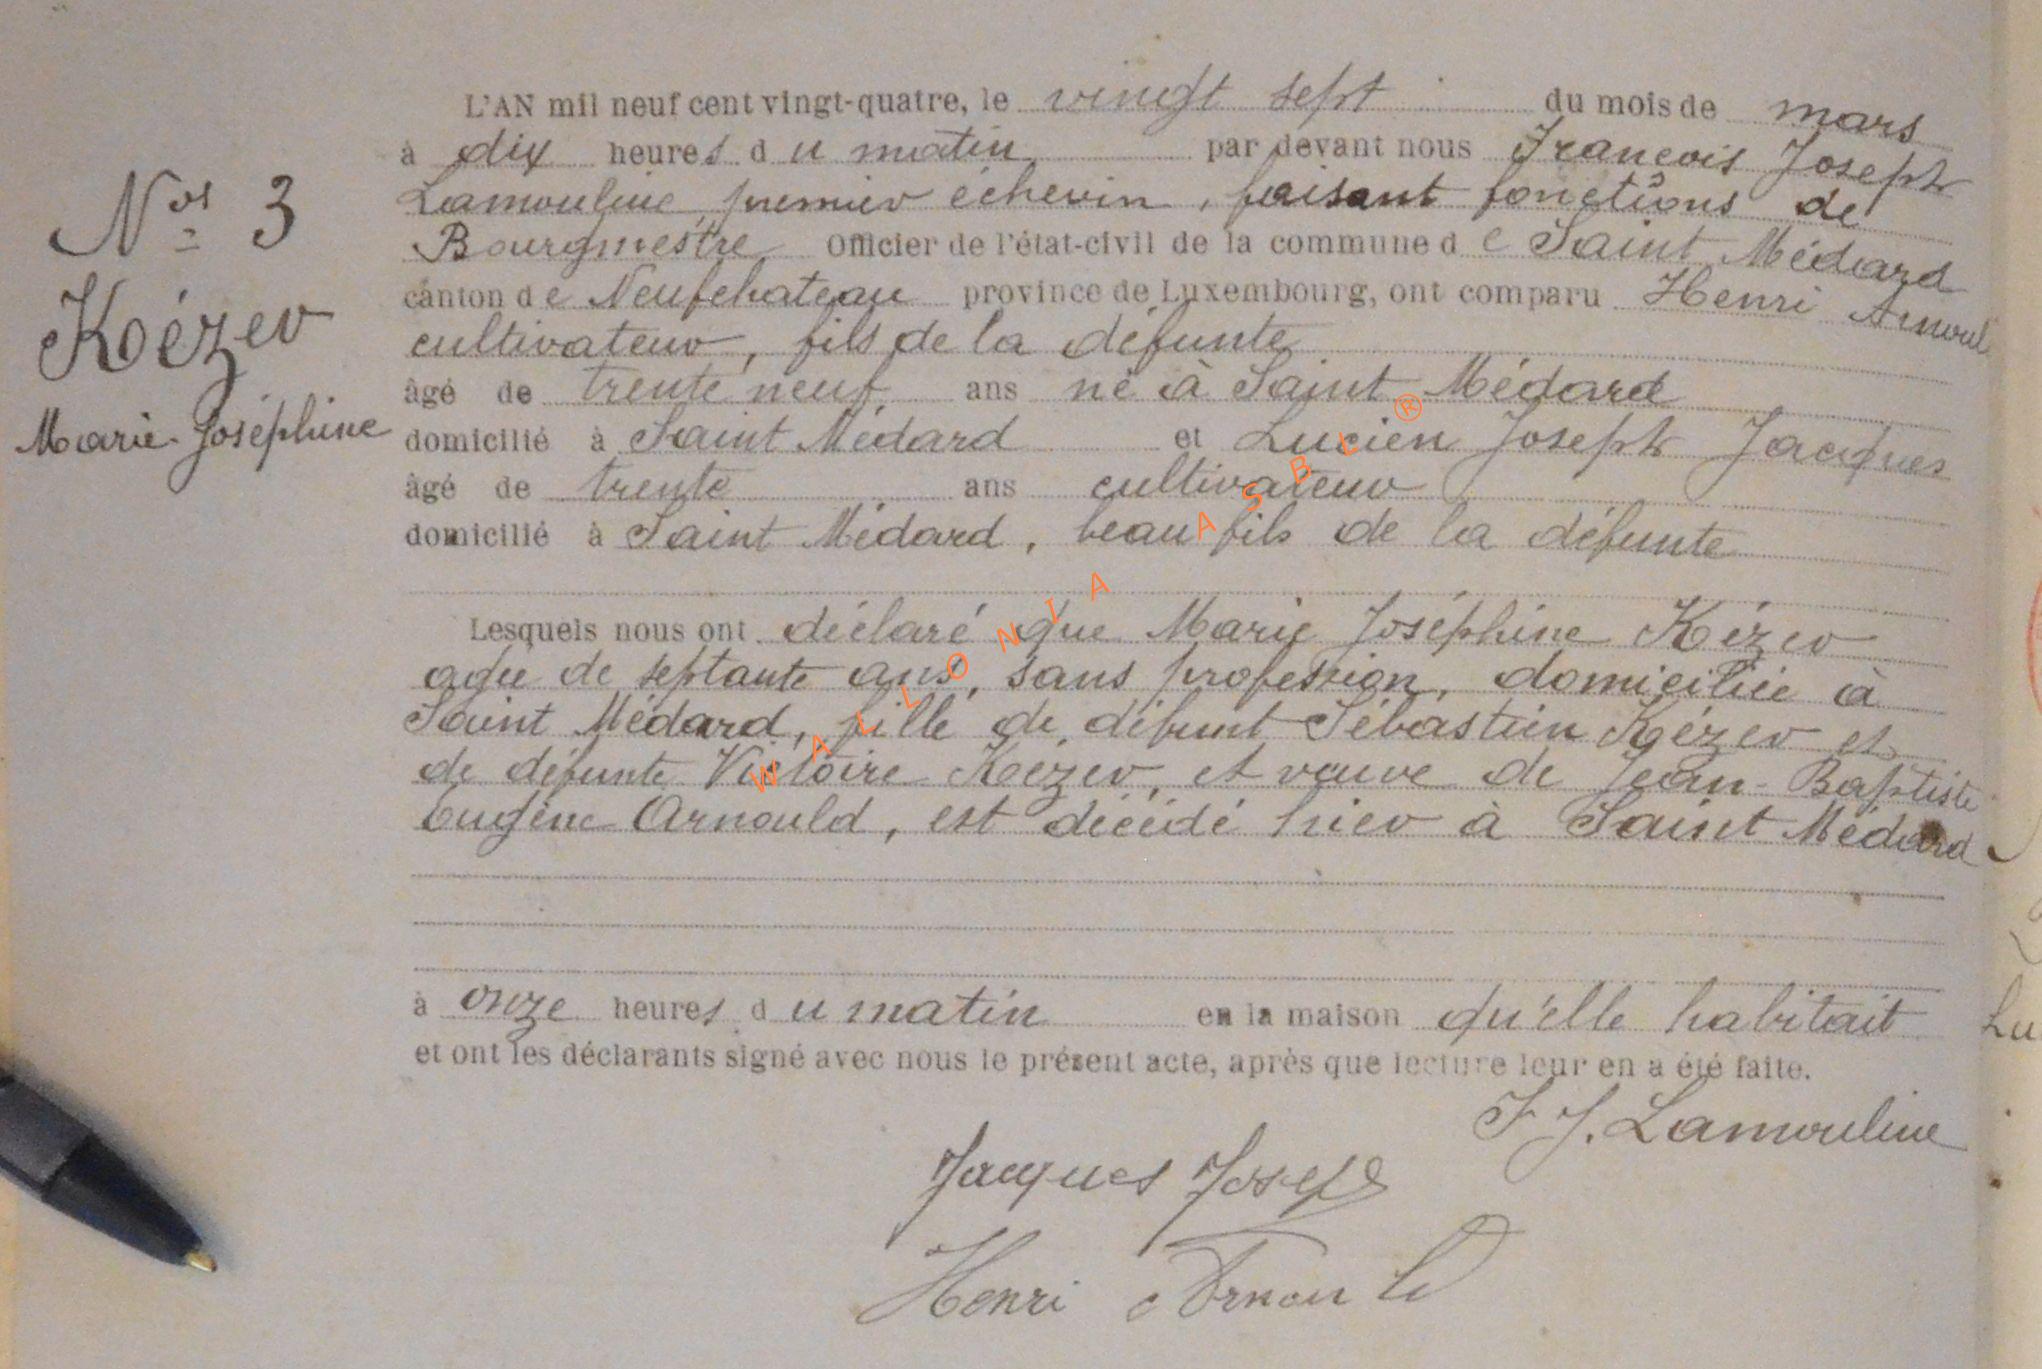 L'AN mil neuf cent vingt-quatre, le vingt sept du mois de mars
à dix heures du matin, par devant nous François Joseph
Lamouline, premier échevin, faisant fonctions de
Bourgmestre Officier de l'état-civil de la commune de Saint Médard
canton de Neufchateau province de Luxembourg, ont comparu Henri Arnoul
cultivateur, fils de la défunte
âgé de trente neuf ans né à Saint Médard
domicilié à Saint Médard et Lucien Joseph Jacques
âgé de trente ans cultivateur
domicilié à Saint Médard, beau fils de la défunte
Lesquels nous ont déclaré que Marie Joséphine Kézer
agée de septante ans, sans profession, domiciliée à
Saint Médard, fille de défunt Sébastien Kézer et
de défunte Victoire Kézer, et veuve de Jean-Baptiste
Eugène Arnould, est décédé hier à Saint Médard
à onze heures du matin en la maison qu'elle habitait
et ont les déclarants signé avec nous le présent acte, après que lecture leur en a été faite.
F J. Lamouline
Jacques Joseph
Henri Arnould
Nos 3
Koézer
Marie-Joséphine
WALLONIA ASBL ®
Lu